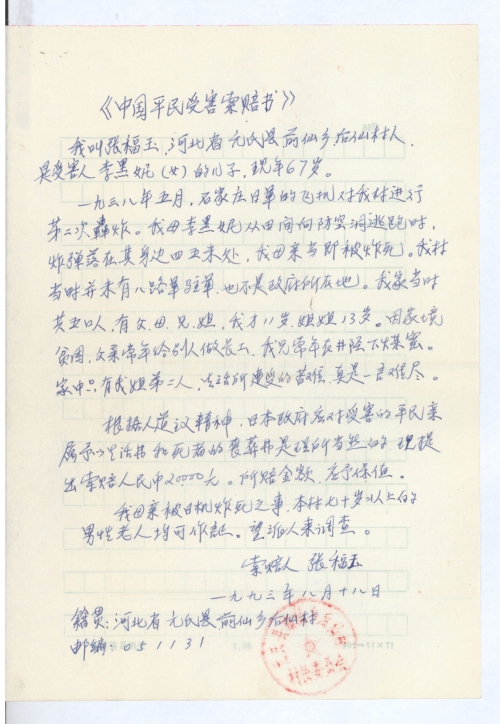 《中国平民受害索赔书》
我叫张福玉,河北省元氏县前仙乡后仙村人,
是受害人李黑妮(女)的儿子,现年67岁。
一九三八年五月,石家庄日军的飞机对我村进行
第二次轰炸。我母李黑妮从田间向防空洞逃跑时,
炸弹落在其身边四五米处,我母亲当即被炸死。我村
当时并未有八路军驻军,也不是政府所在地。我家当时
共五口人,有父、母、兄、姐,我才11岁,姐姐13岁。因家境
贫困,父亲常年给别人做长工,我兄常年在井陉下煤窑。
家中只有我姐弟二人,生活所遭受的苦难,真是一言难尽。
根据人道议精神,日本政府应对受害的平民亲
属予以生活费和死者的丧葬费是理所当然的。现提
出索赔人民币20000元。所赔金额,应予保值。
我母亲被日机炸死之事,本村七十岁以上的
男性老人均可作证。望派人来调查。
索赔人 张福玉
一九九三年八月十八日
籍贯:河北省元氏县前仙乡后仙村
邮编:051131
村民委员会